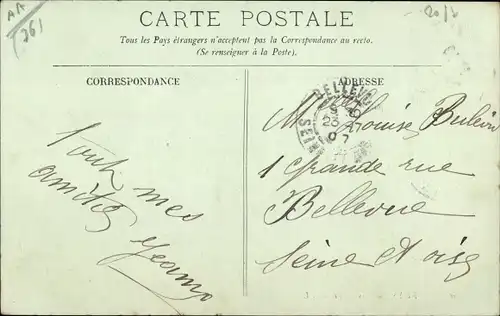 AA
761
CARTE POSTALE
Tous les Pays étrangers n'acceptent pas la Correspondance au recto.
(Se renseigner à la Poste).
CORRESPONDANCE
Toutes mes
amitiés
Jeanne
ADRESSE
BELLEVUE
SEINE
Melle Louise
1 grande rue
Bellevue
Seine et oise